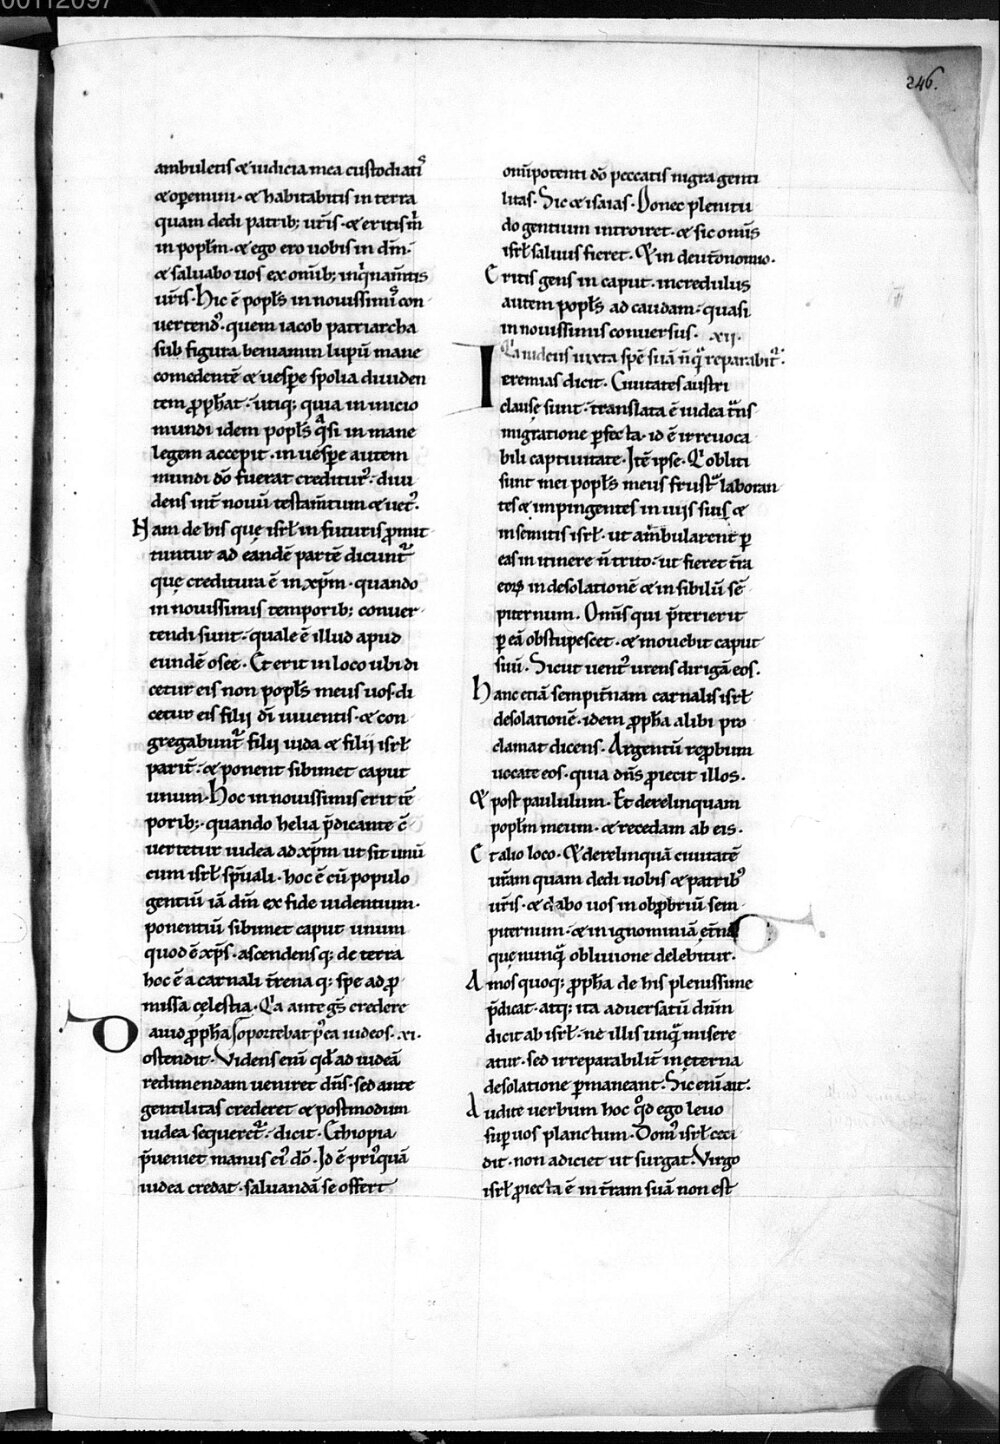 00112097
246.
ambuletis & iudicia mea custodiatis
& operemini · & habitabitis in terra
quam dedi patrib; ur̄is · & eritis m̄
in popl̄m · & ego ero uobis in dm̄·
& saluabo uos ex om̄ib; inq̇nam̄tis
ur̄is · Hic ē popl̄s in nouissimis con
uertend᾽ · quem iacob patriarcha
sub figura beniamin lupū mane
comedentē & uesꝑe spolia diuiden
tem ꝓph̄at · utiq; quia in inicio
mundi idem popl̄s qͣsi in mane
legem accepit · in uesꝑe autem
mundi dō fuerat creditur᾽ · diui
dens int̄ nouū testam̄tum & uet᾽.
Nam de his quę isrl̄ in futuris ꝓmit
tuntur ad eandē partē dicunt᾽
quę creditura ē in xp̄m · quando
in nouissimis temporib; conuer
tendi sunt · quale ē illud apud
eundē osee · Et erit in loco ubi di
cetur eis non popl̄s meus uos · di
cetur eis filii dī uiuentis · & con
gregabunt᾽ filii iuda & filii isrl̄
parit᾽ · & ponent sibimet caput
unum · Hoc in nouissimis erit tē
porib; · quando helia p̄dicante cō
uertetur iudea ad xp̄m ut sit unū
cum isrl̄ sp̄uali · hoc ē cū populo
gentiū iā dm̄ ex fide uidentium·
ponentiū sibimet caput unum
quod ē xp̄s · ascendensq; de terra
hoc ē a carnali t̄renaq; spe ad ꝓ
missa cęlestia. Qͣ ante gs̄ credere
Dauid ꝓph̄a oportebat p᾽ea iudeos · xi·
ostendit · Videns enī qđ ad iudeā
redimendam ueniret dn̄s · sed ante
gentilitas crederet & postmodum
iudea sequeret᾽ · dicit · Ethiopia
p̄ueniet manus ei᾽ dō · Id ē priꝰquā
iudea credat · saluandā se offert
om̄ipotenti dō peccatis nigra genti
litas · Sic & isaias · Donec plenitu
do gentium introiret · & sic om̄is
isrl̄ saluus fieret · Et in deut᾽onomio·
Eritis gens in caput · incredulus
autem popl̄s ad caudam · quasi
in nouissimis conuersus · xii·
Qͣ iudeus iuxta spē suā n̄ qͣ reparabit᾽·
Ieremias dicit · Ciuitates austri
clausę sunt · translata ē iudea tͣns
migratione ꝑfecta · id ē irreuoca
bili captiuitate · Itē ipse · Qͣ obliti
sunt mei popl̄s meus frustͣ laboran
tes & impingentes in uiis suis &
in semitis isrl̄ · ut ambularent ꝑ
eas in itinere n̄ trito · ut fieret t̄ra
eoꝝ in desolationē & in sibilū sē
piternum · Om̄is qui p̄terierit
ꝑ eā obstupescet · & mouebit caput
suū · Sicut uent᾽ urens dirigā eos·
Hanc etiā sempit᾽nam carnalis isrl̄
desolationē · idem ꝓph̄a alibi pro
clamat dicens · Argentū reꝓbum
uocate eos · quia dn̄s ꝓiecit illos·
Et post paululum · Et derelinquam
popl̄m meum · & recedam ab eis·
Et alio loco · Et derelinquā ciuitatē
ur̄am quam dedi uobis & patrib᾽
ur̄is · & dabo uos in obꝓbriū sem
piternum · & in ignominiā et᾽nā
quę nunqͣ obliuione delebitur·
Amos quoq; ꝓph̄a de his plenissime
p̄dicat · atq; ita aduersatū dn̄m
dicit ab isrl̄ · ne illis unqͣ misere
atur · sed irreparabiliū in ęterna
desolatione ꝑmaneant · Sic enī ait·
Audite uerbum hoc qͦd ego leuo
suꝑ uos planctum · Dom᾽ isrl̄ ceci
dit · non adiciet ut surgat · Virgo
isrl̄ ꝓiecta ē in t̄ram suā non est